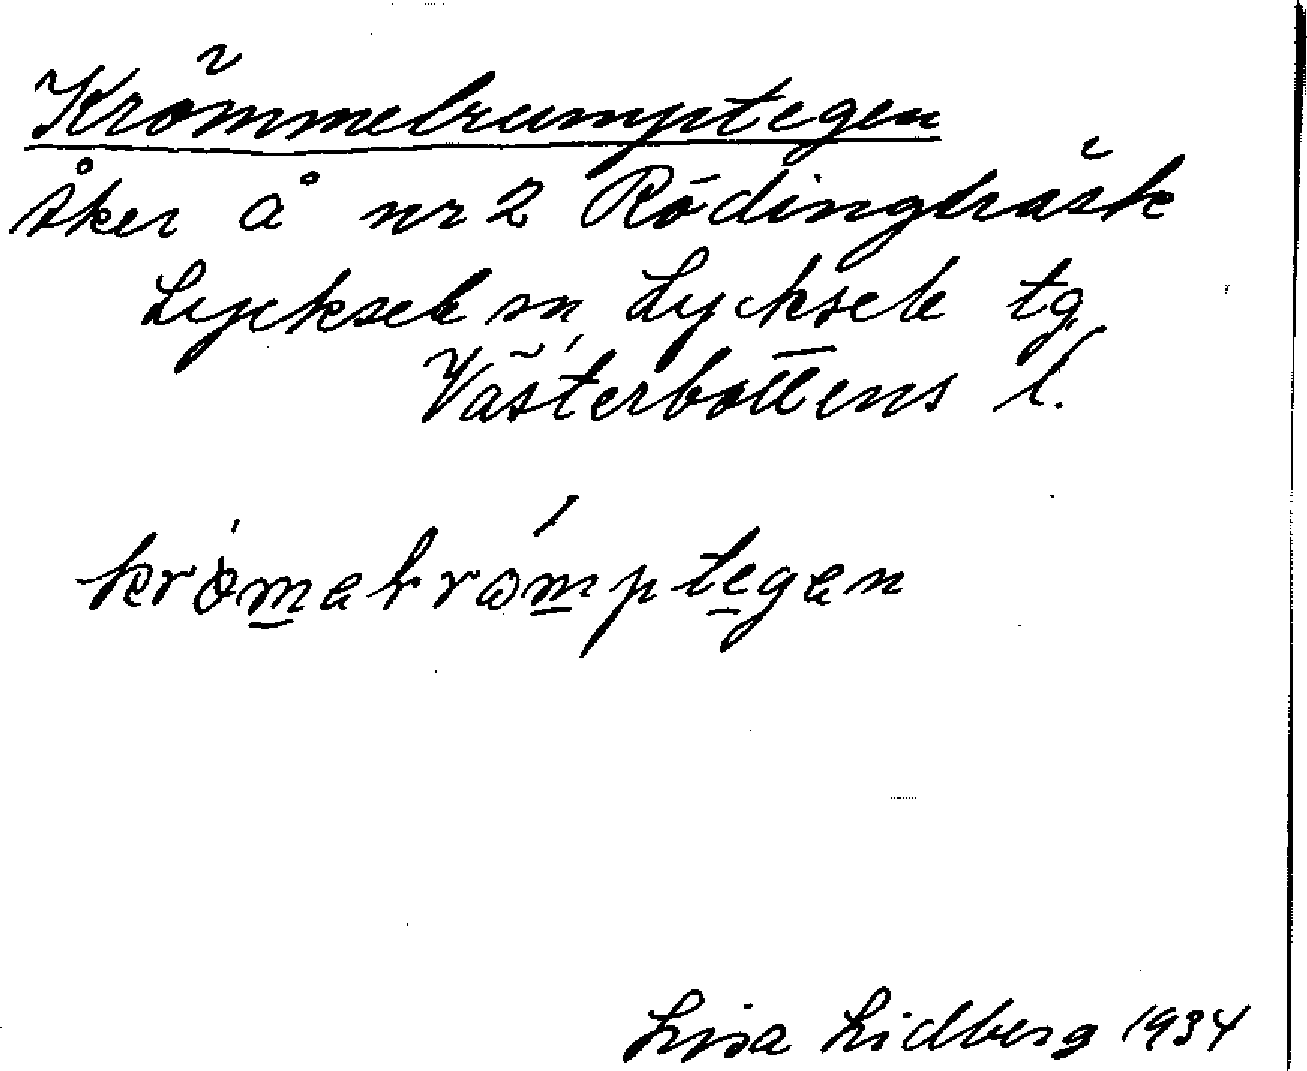 Krömmelrumptegen
åker å nr 2 Rödingträsk
Lycksele sn, Lycksele tg
Västerbottens l.
Lisa Lidberg 1934